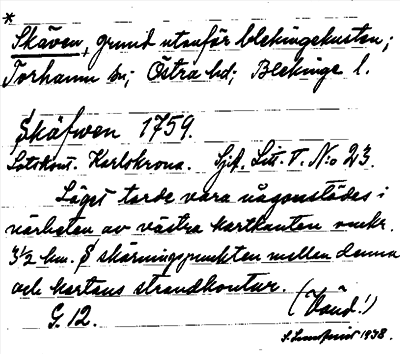 *
Skäven, grund utanför blekingekusten;
Torhamn sn; Östra hd; Blekinge l.
Skäfwen 1759.
Lotskont. Karlskrona. Sjk. Litt. T. No 23.
Läget torde vara någonstädes i
närheten av västra kartkanten omkr.
3½ km. S skärningspunkten mellan denna
och kartans strandkontur.
G. 12.
(Vänd!)
1938.